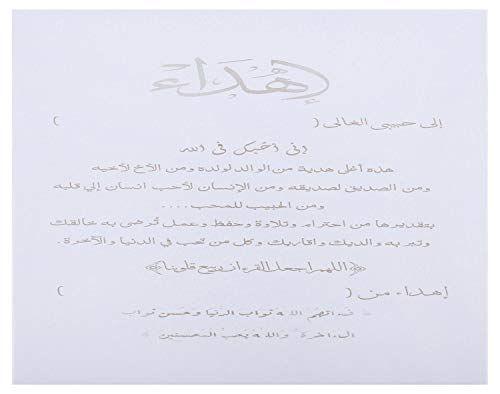 إهداء
إلى حبيبي الغالي (                    )
إني أحبك في الله
هذه أغلى هدية من الوالد لولده ومن الأخ لأخيه
ومن الصديق لصديقه ومن الإنسان لأحب انسان إلي قلبه
ومن الحبيب للمحب ....
بتقديرها من احترام وتلاوة وحفظ وعمل تُرضي به خالقك
وتبر به والديك واقاربك وكل من تحب في الدنيا والآخرة.
﴿اللهم اجعل القرءان ربيع قلوبنا﴾
إهداء من (                    )
فـئاتهم الله ثواب الدنيا وحسن ثواب
الـاخرة والله يحب المحسنين